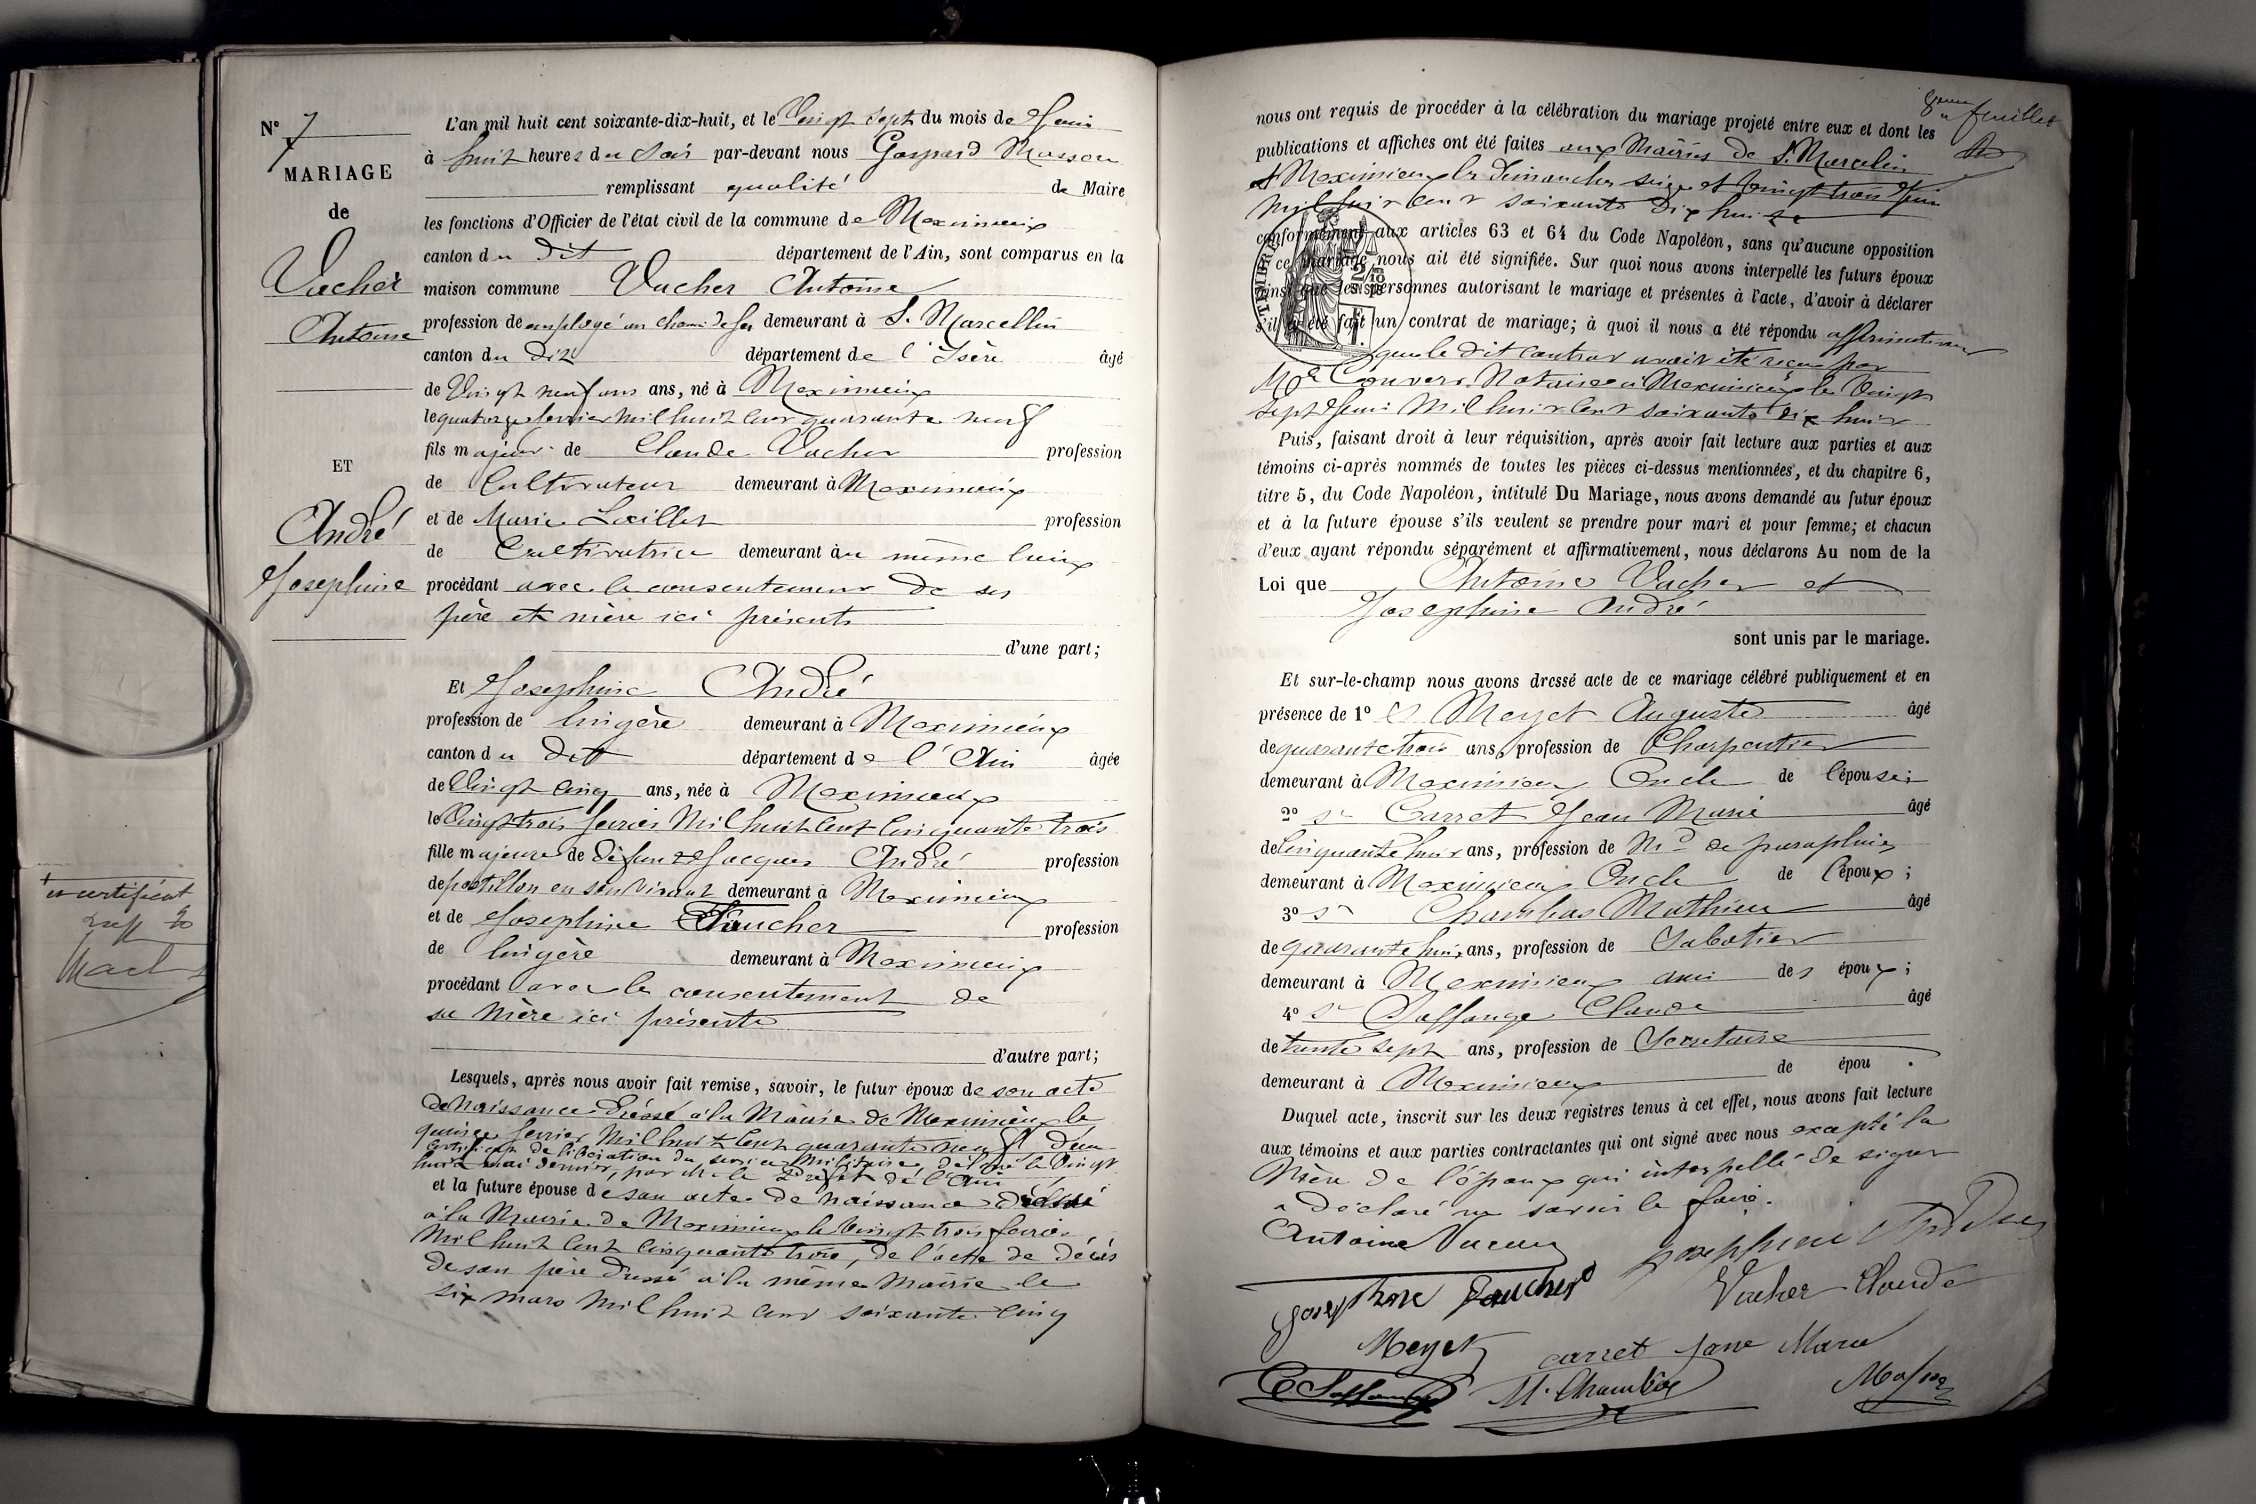 N° 7
MARIAGE
de
Vacher
Antoine
ET
André
Josephine
L'an mil huit cent soixante-dix-huit, et le Vingt Sept du mois de Juin
à huit heures du Soir par-devant nous Gaspard Masson
remplissant qualité de Maire
les fonctions d'Officier de l'état civil de la commune de Meximieux
canton du dit département de l'Ain, sont comparus en la
maison commune Vacher Antoine
profession de employé au chemin de fer demeurant à St Marcellin
canton du dit département de l'Isère âgé
de Vingt neuf ans ans, né à Meximieux
le quatorze fevrier mil huit cent quarante neuf
fils majeur de Claude Vacher profession
de Cultivateur demeurant à Meximieux
et de Marie profession
de Cultivatrice demeurant au même lieux
procédant avec le consentement de ses
père et mère ici présents
d'une part;
Et Josephine André
profession de lingère demeurant à Meximieux
canton du dit département de l'Ain âgée
de Vingt cinq ans, née à Meximieux
le Vingt trois fevrier Mil huit Cent Cinquante trois
fille majeure de défunt Jacques André profession
de postillon en son vivant demeurant à Meximieux
et de Josephine Faucher profession
de lingère demeurant à Meximieux
procédant avec le consentement de
sa Mère ici présente
d'autre part;
Lesquels, après nous avoir fait remise, savoir, le futur époux de son acte
de Naissance dressé à la Mairie de Meximieux le
quinze fevrier Mil huit Cent quarante neuf d'un
certificat de libération du service Militaire délivré le Vingt
huit mai dernier, par Mr le Préfet de l'Ain
et la future épouse de son acte de naissance dressé
à la Mairie de Meximieux le Vingt trois fevrier
Mil huit Cent Cinquante trois, de l'acte de décès
de son père dressé à la même Mairie le
six mars Mil huit cent soixante cinq
+
certificat
nous ont requis de procéder à la célébration du mariage projeté entre eux et dont les
feuillet
publications et affiches ont été faites aux Mairies de St Marcelin
et Meximieux les Dimanches seize et Vingt trois Juin
Mil huit Cent soixante dix huit
conformément aux articles 63 et 64 du Code Napoléon, sans qu'aucune opposition
ce mariage nous ait été signifiée. Sur quoi nous avons interpellé les futurs époux
ainsi que les personnes autorisant le mariage et présentes à l'acte, d'avoir à déclarer
s'il a été fait un contrat de mariage; à quoi il nous a été répondu affirmativement
que le dit contrat avait été reçu par
Me Convers Notaire à Meximieux le Vingt
sept Juin Mil huit Cent soixante dix huit
Puis, faisant droit à leur réquisition, après avoir fait lecture aux parties et aux
témoins ci-après nommés de toutes les pièces ci-dessus mentionnées, et du chapitre 6,
titre 5, du Code Napoléon, intitulé Du Mariage, nous avons demandé au futur époux
et à la future épouse s'ils veulent se prendre pour mari et pour femme; et chacun
d'eux ayant répondu séparément et affirmativement, nous déclarons Au nom de la
Loi que Antoine Vacher et
Josephine André
sont unis par le mariage.
Et sur-le-champ nous avons dressé acte de ce mariage célébré publiquement et en
présence de 1° Sr Meyet Auguste âgé
de quarante trois ans, profession de Charpentier
demeurant à Meximieux Oncle de l'épouse;
2° Sr Carret Jean Marie âgé
de Cinquante huit ans, profession de Md de parapluies
demeurant à Meximieux Oncle de l'époux;
3° Sr Chambas Mathieu âgé
de quarante huit ans, profession de Sabotier
demeurant à Meximieux ami des époux;
4° Sr Claude âgé
de trente sept ans, profession de Secretaire
demeurant à Meximieux de épou
Duquel acte, inscrit sur les deux registres tenus à cet effet, nous avons fait lecture
aux témoins et aux parties contractantes qui ont signé avec nous excepté la
Mère de l'époux qui interpellé de signer
a déclaré ne savoir le faire.
Antoine Vacher
Josephine André
Josephine Faucher
Vacher Claude
Meyet
carret Jane Marie
M. Chambas
Masson